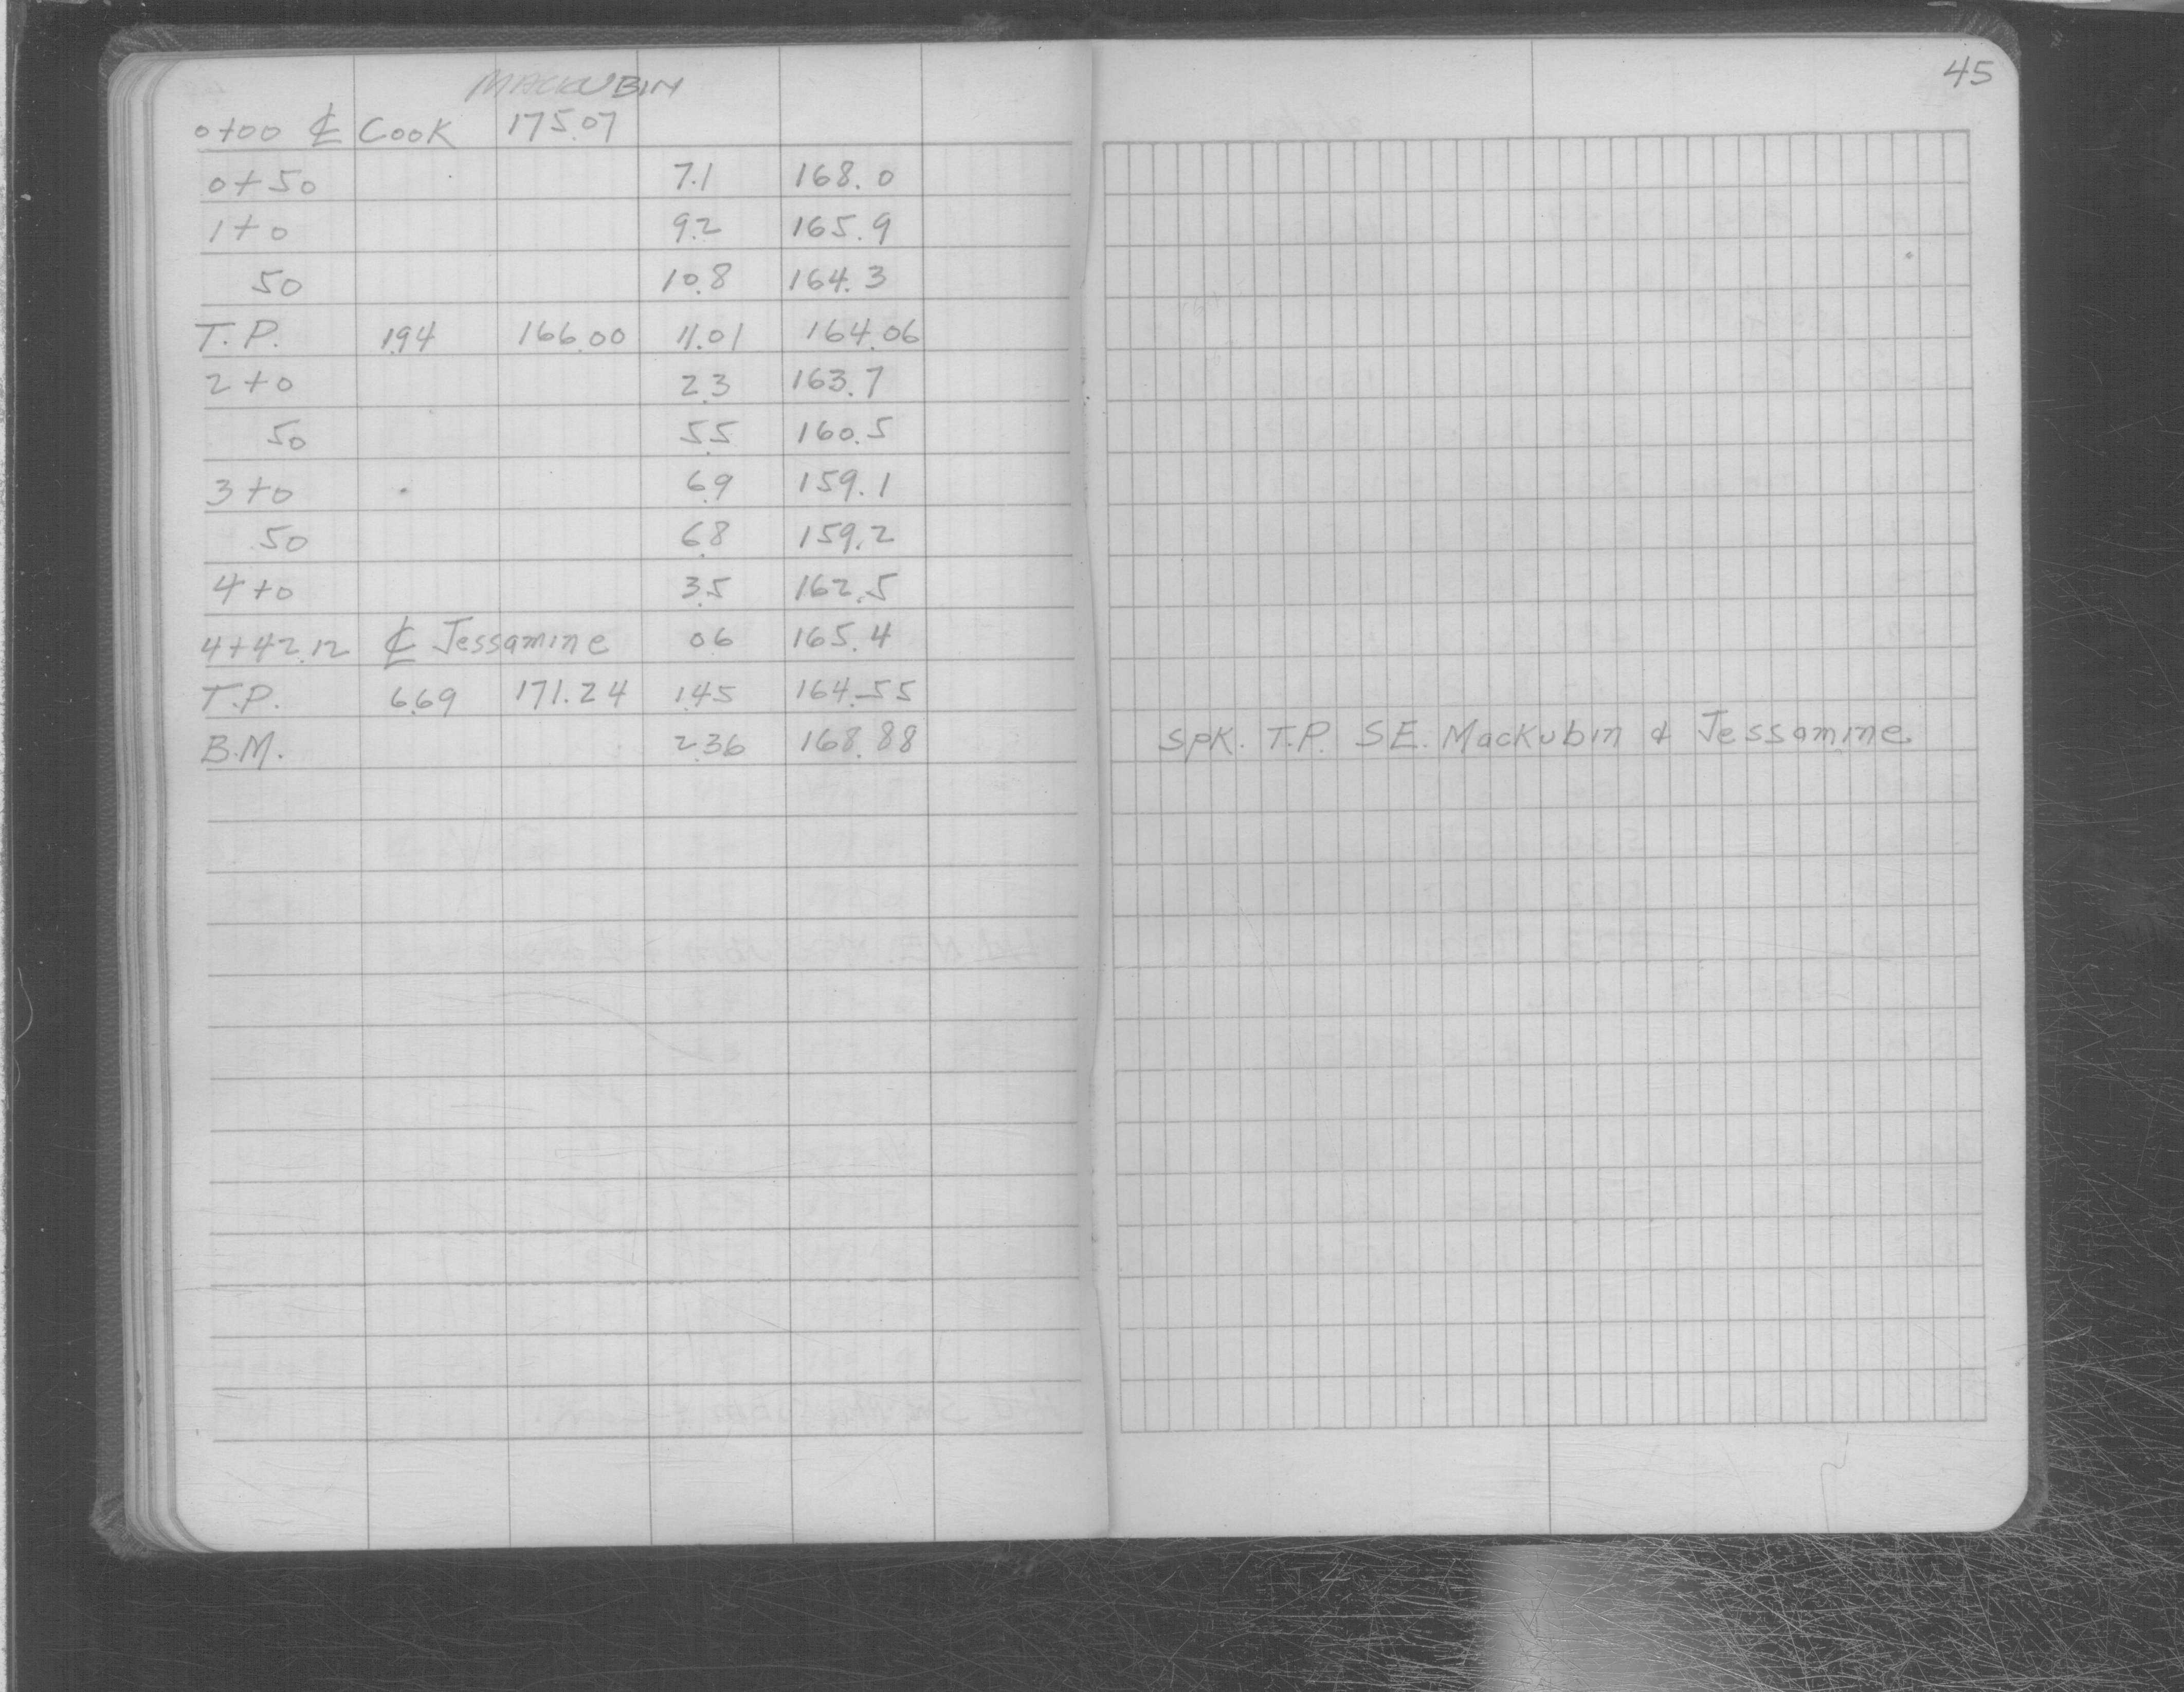 MACKUBIN
45
0+00 ℄ Cook 175.07
0+50 7.1 168.0
1+0 9.2 165.9
50 10.8 164.3
T.P. 1.94 166.00 11.01 164.06
2+0 2.3 163.7
50 5.5 160.5
3+0 6.9 159.1
50 6.8 159.2
4+0 3.5 162.5
4+42.12 ℄ Jessamine 0.6 165.4
T.P. 6.69 171.24 1.45 164.55
B.M. 2.36 168.88 Spk. T.P. SE. Mackubin & Jessamine